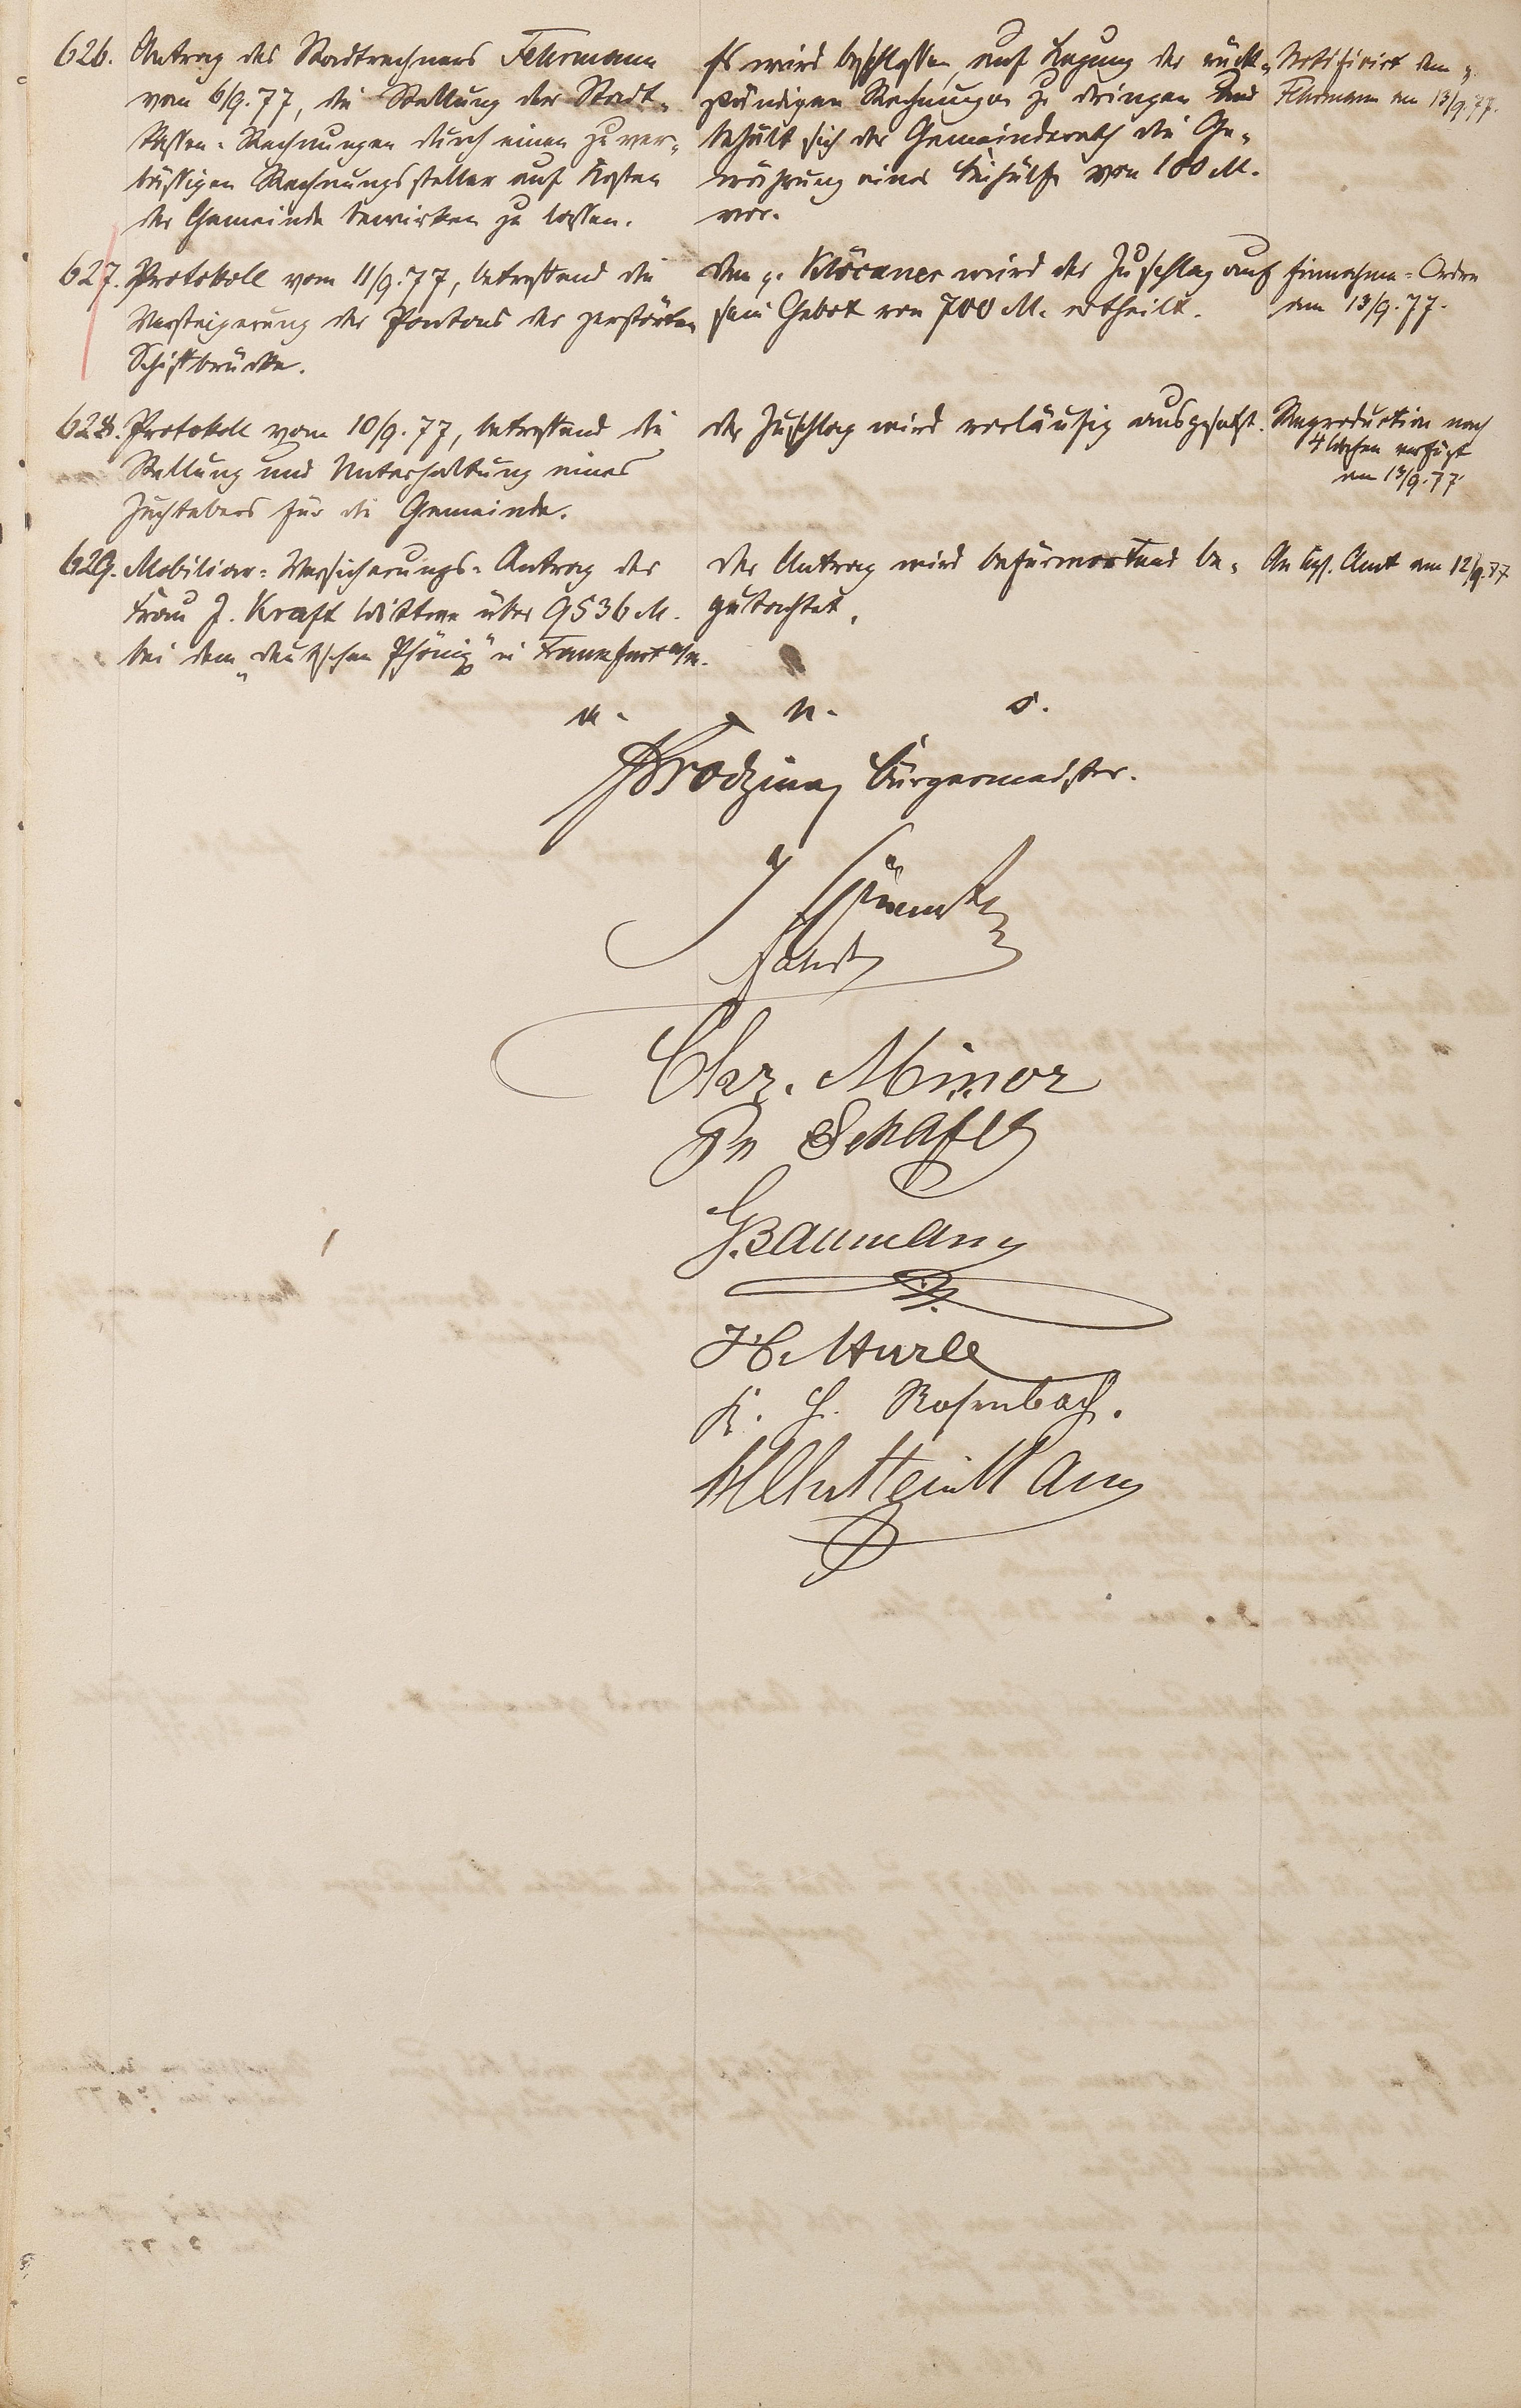 626. Antrag des Stadtrechners Fehrmann
vom 6/9. 77, die Stellung der Stadt-
kassen-Rechnungen durch einen zuver-
lässigen Rechnungssteller auf Kosten
der Gemeinde bewirken zu lassen.
Es wird beschlossen, auf Legung der rück-
ständigen Rechnungen zu dringen und
behält sich der Gemeinderath die Ge-
währung einer Beihülfe von 100 M.
vor.
Notificirt dem p.
Fehrmann am 13/9. 77.
627. Protokoll vom 11/9. 77, betreffend die
Versteigerung der Pontons der zerstörten
Schiffbrücke.
Dem p. Klöckner wird der Zuschlag auf
sein Gebot von 700 M. ertheilt.
Einnahme-Ordre
am 13/9. 77.
628. Protokoll vom 10/9. 77, betreffend die
Stellung und Unterhaltung eines
Zuchtebers für die Gemeinde.
Der Zuschlag wird vorläufig ausgesetzt.
Reproduction nach
4 Wochen verfügt
am 13/9. 77
629. Mobiliar-Versicherungs-Antrag der
Frau J. Kraft Wittwe über 9536 M.
bei dem „deutschen Phönix" in Frankfurt a/m.
Der Antrag wird befürwortend be-
gutachtet.
An Kgl. Amt am 12/9. 77
u. n. s.
Bürgermeister.
Chr. Minor
Schäfer
G. Baumann
H. Hurle
K. H. Rosenbach.